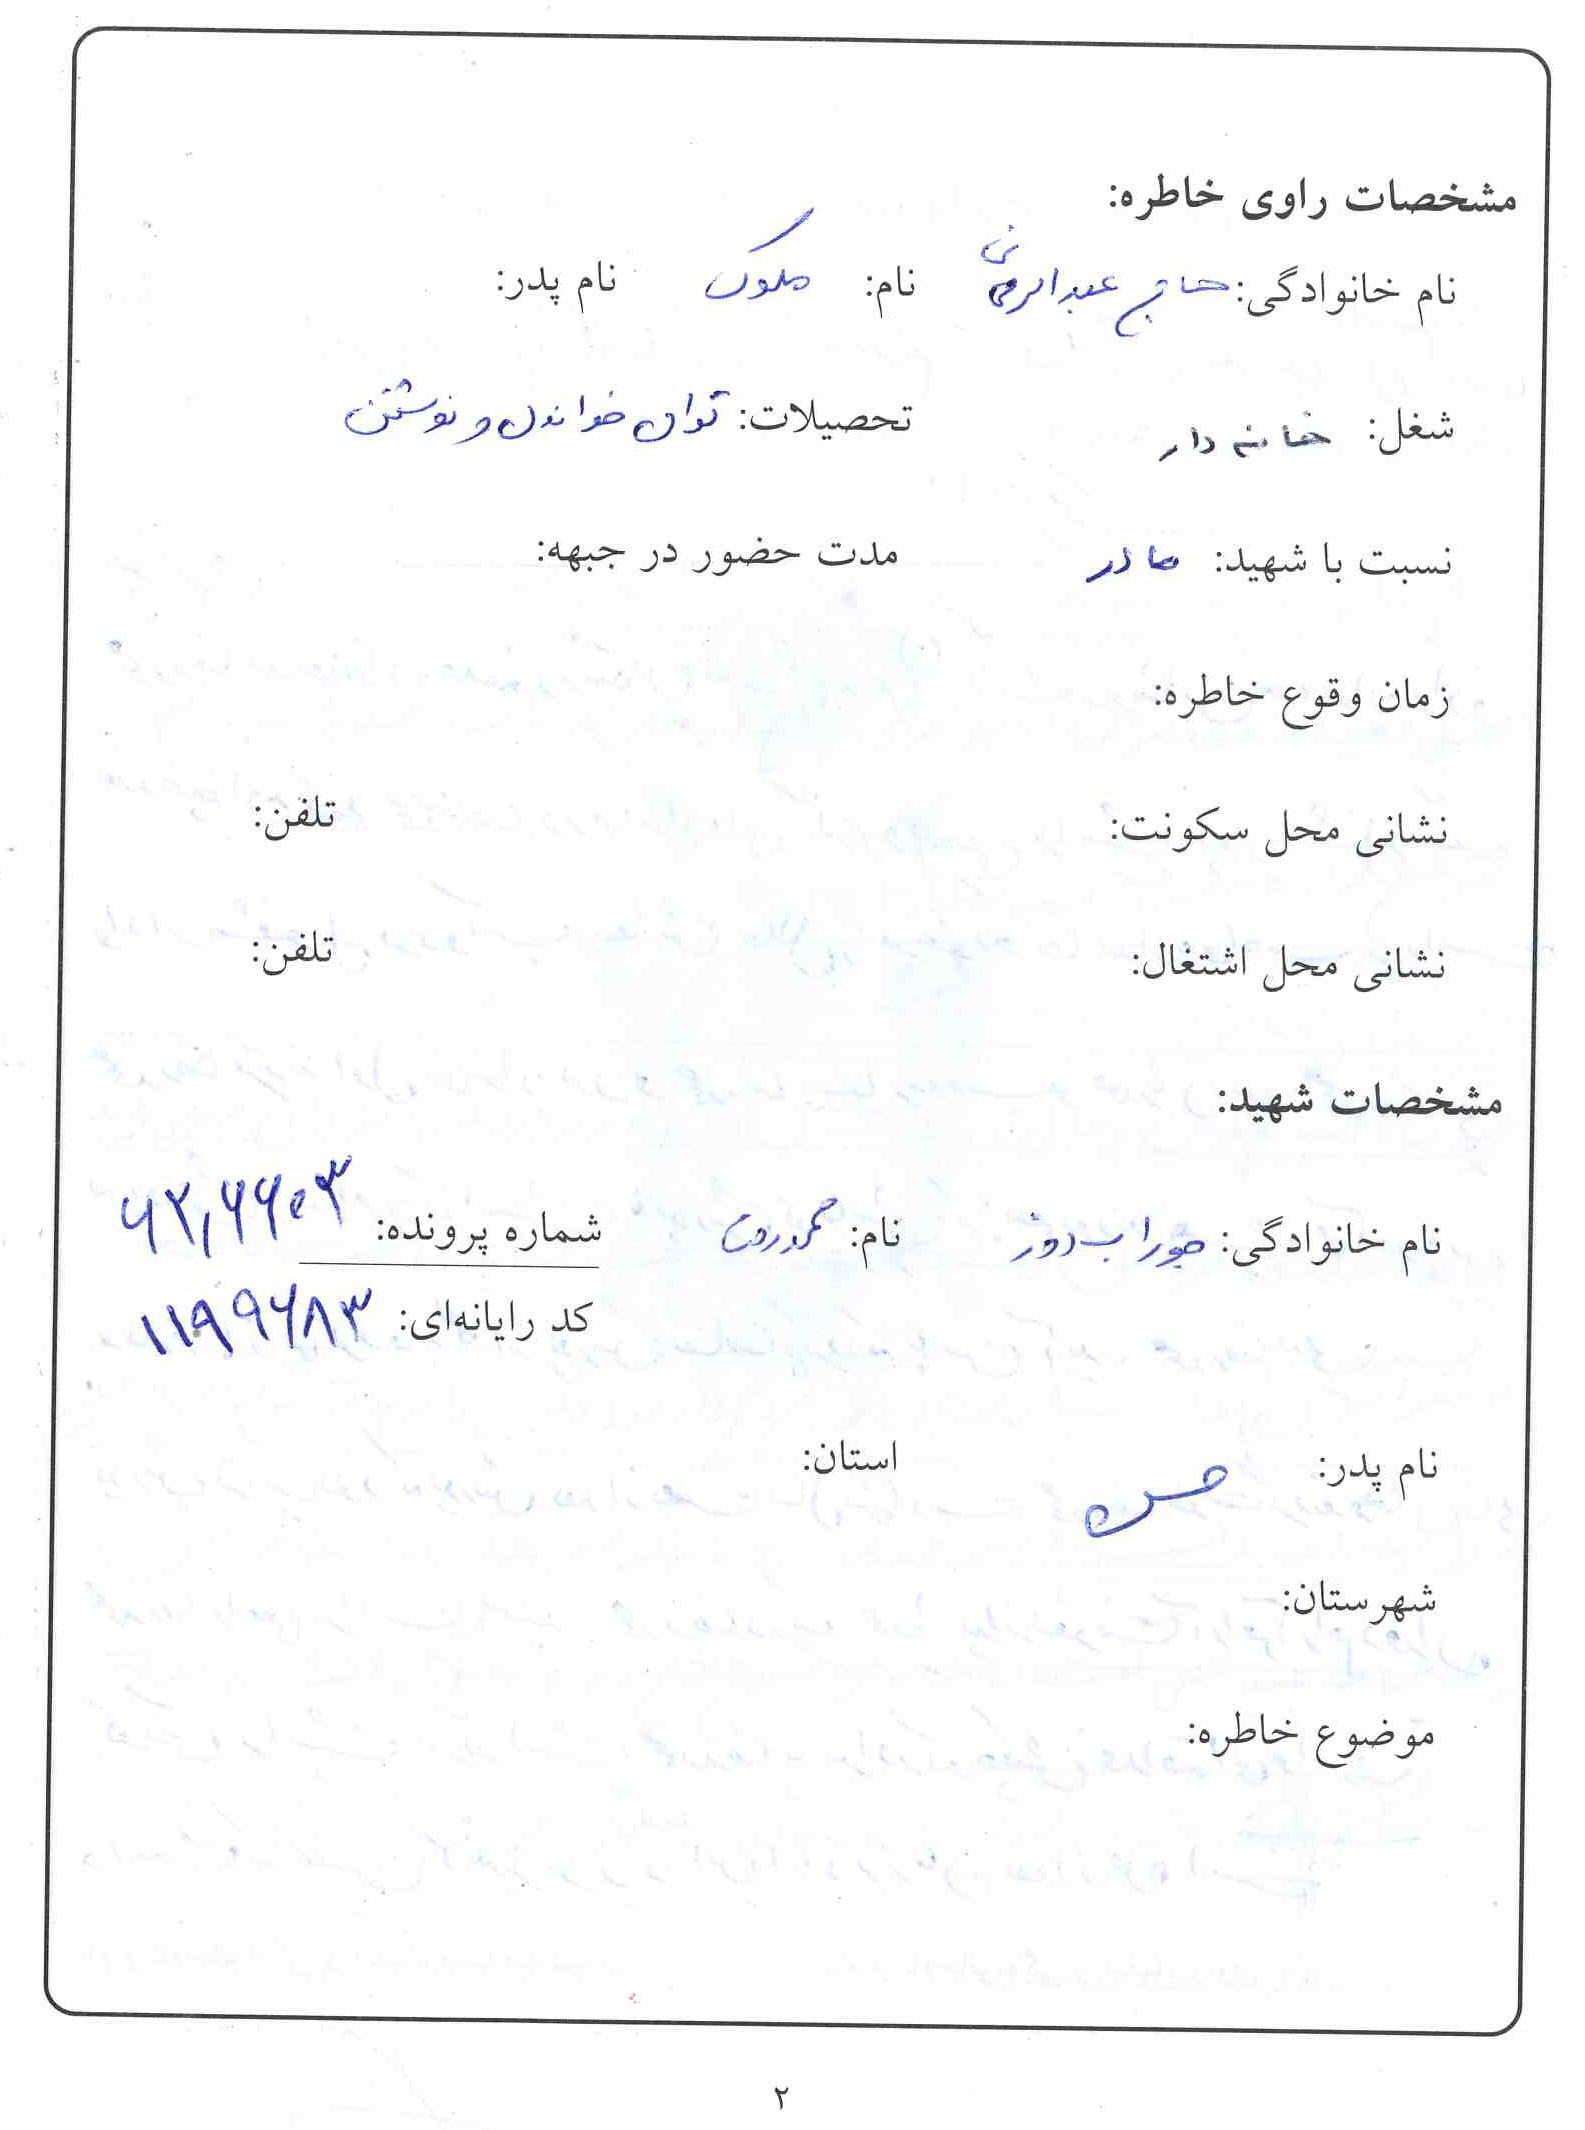 مشخصات راوی خاطره:
نام خانوادگی: حاج عبدالرحمانی نام: ملوک نام پدر:
شغل: خانه دار تحصیلات: توان خواندن و نوشتن
نسبت با شهید: مادر مدت حضور در جبهه:
زمان وقوع خاطره:
نشانی محل سکونت: تلفن:
نشانی محل اشتغال: تلفن:
مشخصات شهید:
نام خانوادگی: جوراب دوز نام: شماره پرونده:
کد رایانه‌ای: ۱۱۹۹۶۸۳
نام پدر: حسن استان:
شهرستان:
موضوع خاطره:
۲